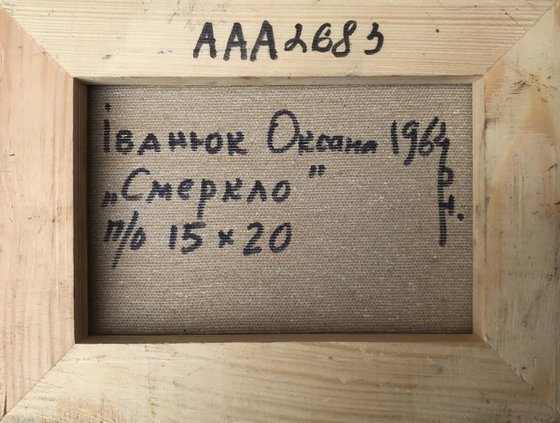 AAA2683
Іванюк Оксана 1964
р
н.
„Смеркло"
п/о 15×20